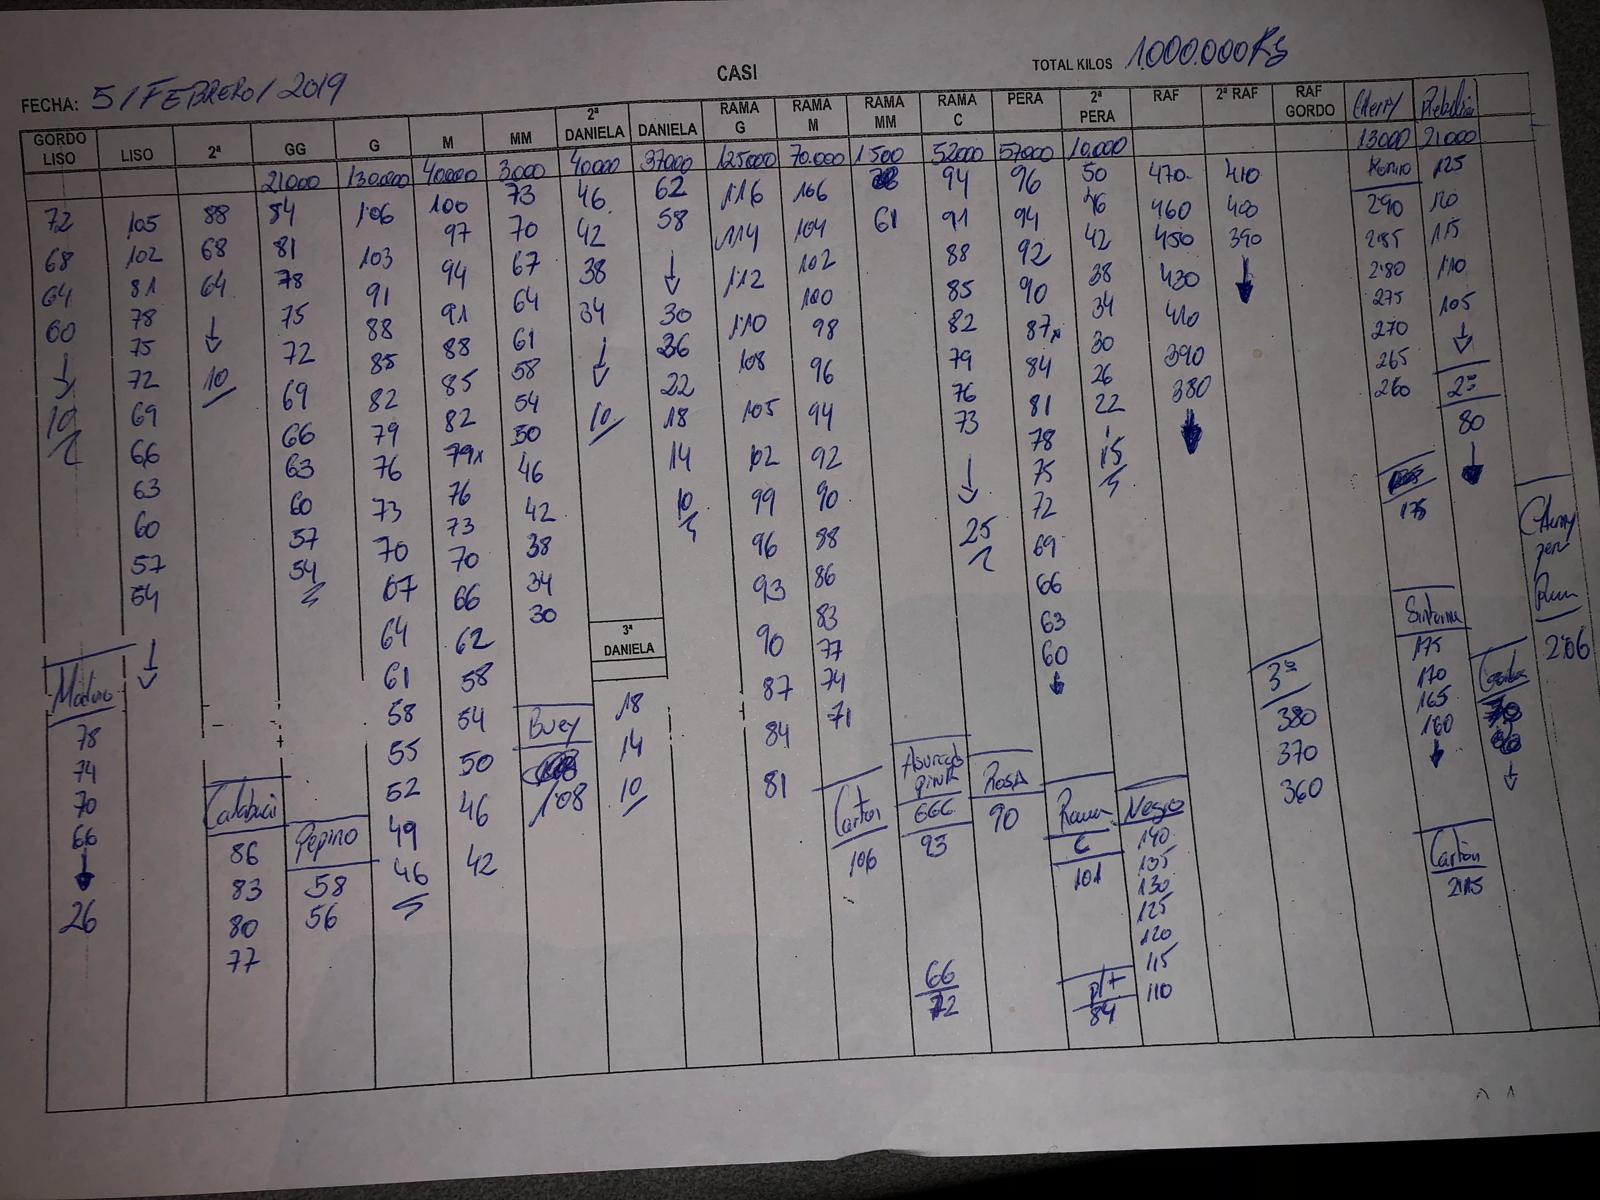 CASI
TOTAL KILOS 1.000.000 Kg
FECHA: 5 / FEBRERO / 2019
GORDO LISO
72
68
64
60
↓
10
Maduro
78
74
70
66
↓
26
LISO
105
102
81
78
75
72
69
66
63
60
57
54
↓
2ª
88
68
64
↓
10
Calabacin
86
83
80
77
GG
21000
84
81
78
75
72
69
66
63
60
57
54
Pepino
58
56
G
130.000
106
103
91
88
85
82
79
76
73
70
67
64
61
58
55
52
49
46
M
40000
100
97
94
91
88
85
82
79x
76
73
70
66
62
58
54
50
46
42
MM
3000
73
70
67
64
61
58
54
50
46
42
38
34
30
Buey
108
2ª DANIELA
40000
46
42
38
34
↓
10
3ª DANIELA
18
14
10
DANIELA
37000
62
58
↓
30
36
22
18
14
10
RAMA G
125000
116
114
112
110
108
105
102
99
96
93
90
87
84
81
RAMA M
70.000
106
104
102
100
98
96
94
92
90
88
86
83
77
74
71
Carton
106
RAMA MM
1500
61
RAMA C
52000
94
91
88
85
82
79
76
73
↓
25
GGG
93
66
72
PERA
57000
96
94
92
90
87x
84
81
78
75
72
69
66
63
60
↓
Rosa
90
2ª PERA
10.000
50
46
42
38
34
30
26
22
15
Rama C
101
p/t
84
RAF
470
460
450
430
410
390
380
↓
Negro
140
135
130
125
120
115
110
2ª RAF
410
400
390
↓
RAF GORDO
3ª
380
370
360
Cherry
13000
290
285
280
275
270
265
260
175
Rebelión
21000
125
120
115
110
105
↓
2ª
80
↓
Sintoma
175
170
165
160
↓
Carton
215
Cherry pera Rama
206